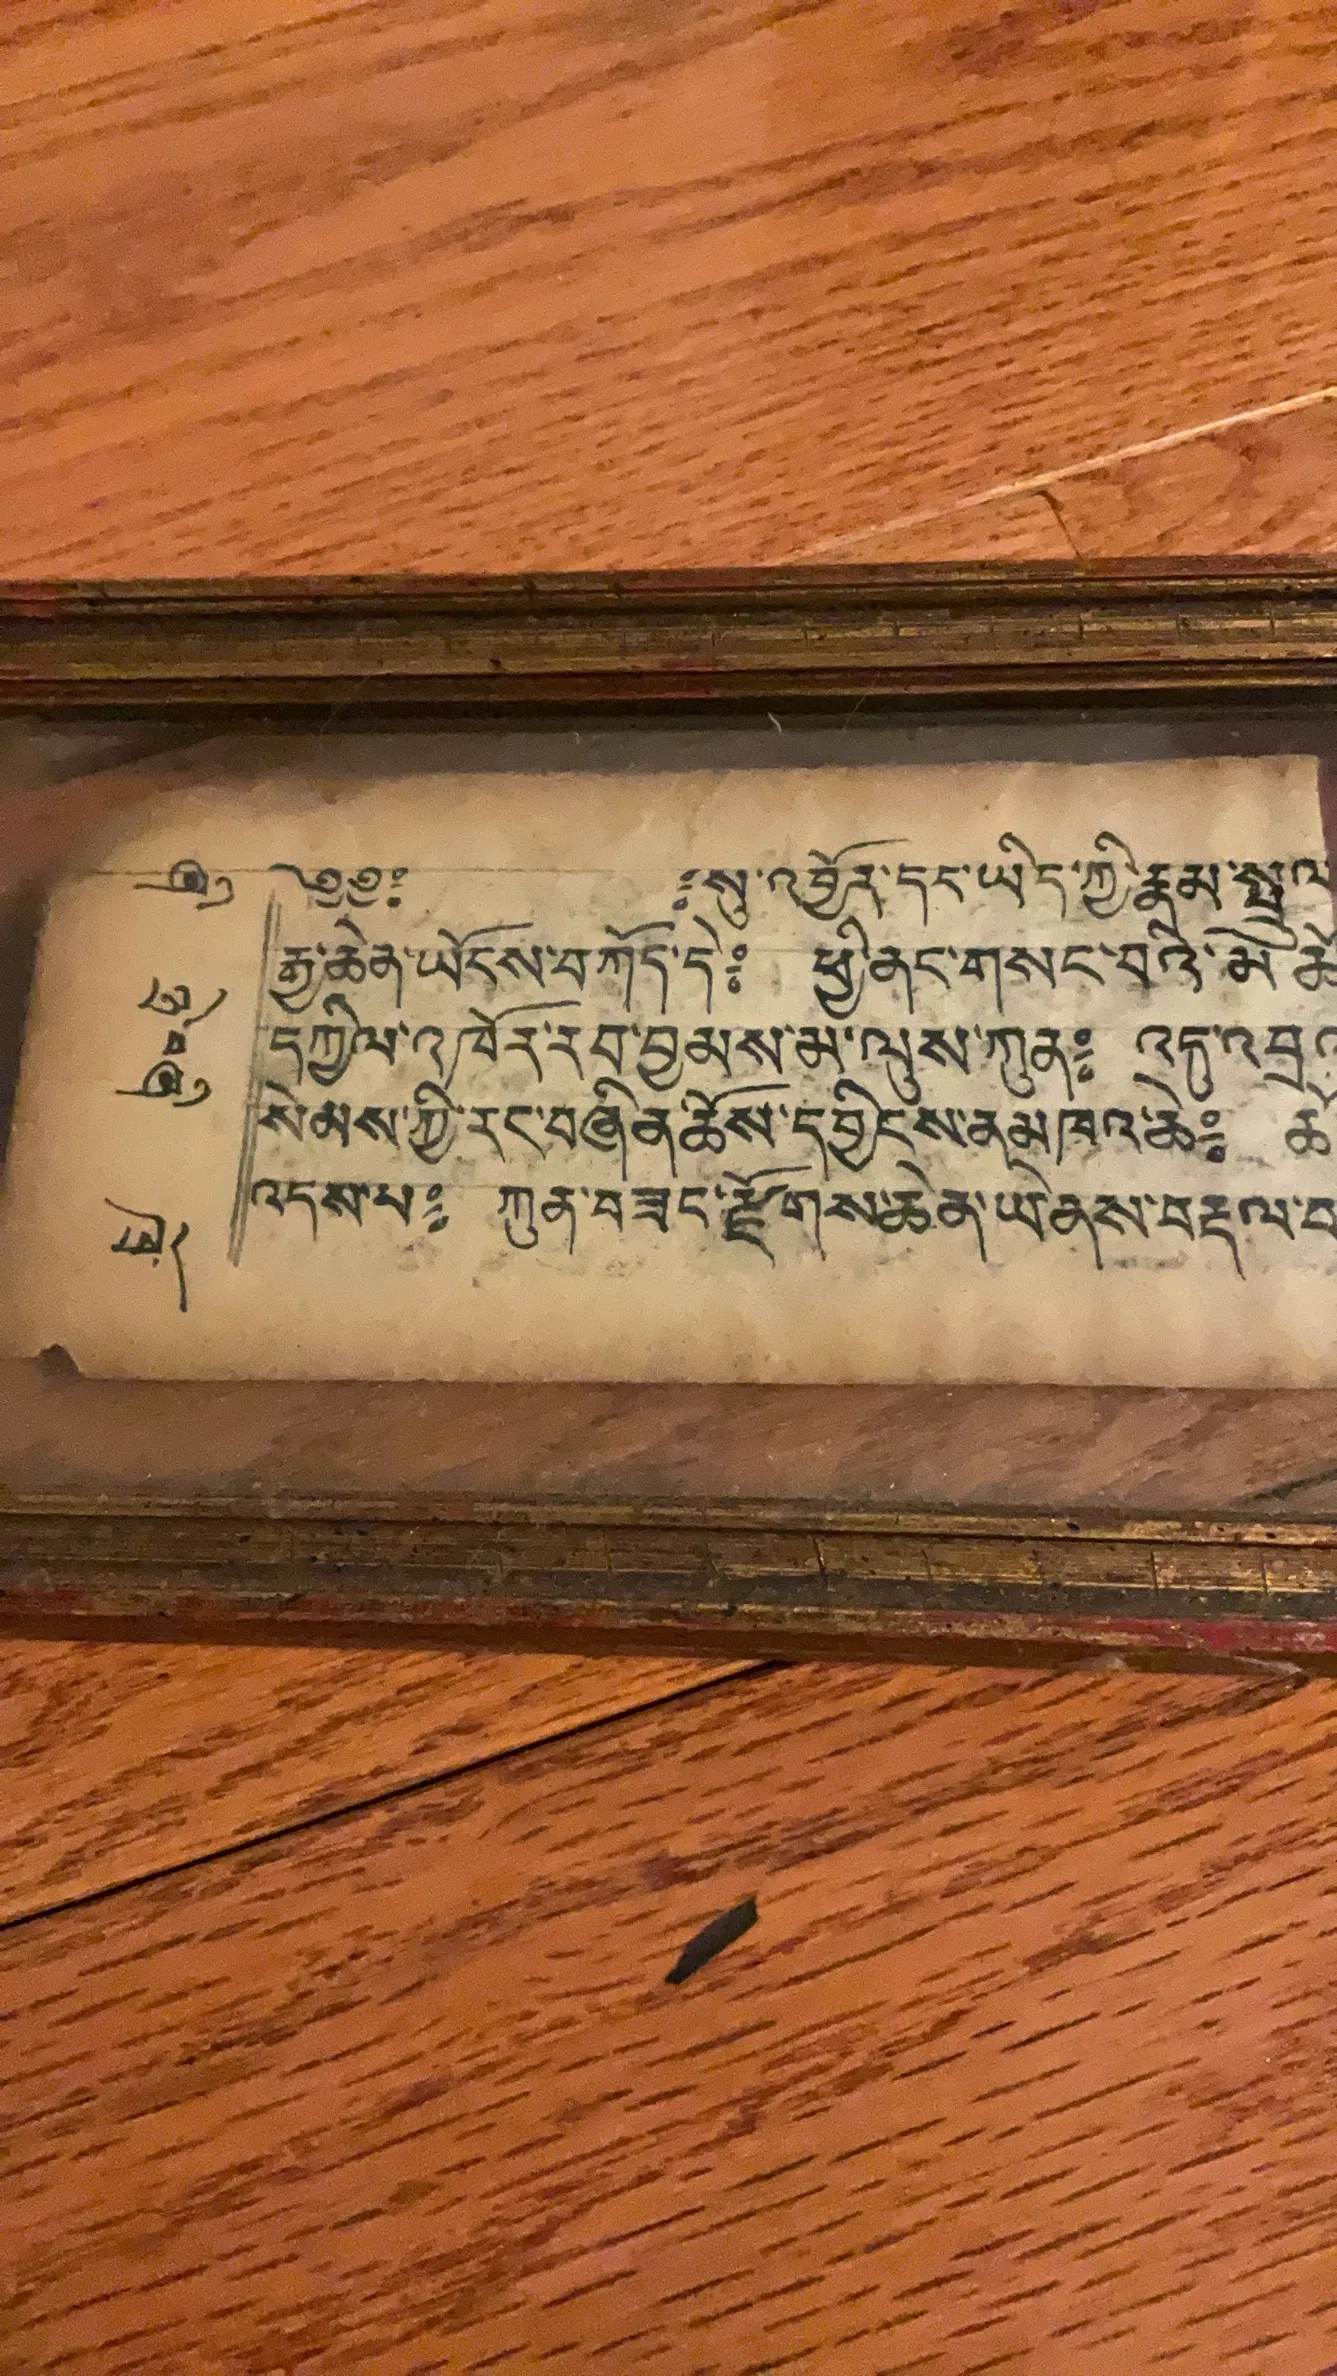 ༄༅༅༔ ༔སུ་འབྱོར་དང་ཡིད་ཀྱི་རྣམ་སྤྲུལ
རྒྱ་ཆེན་ཡོངས་བཀོད་དེ༔ ཕྱི་ནང་གསང་བའི་མེ
དཀྱིལ་འཁོར་རབ་བྱམས་མ་ལུས་ཀུན༔ འདུ་འབྲལ
སེམས་ཀྱི་རང་བཞིན་ཆོས་དབྱིངས་ནམ་ཁའ་ཆེ༔
འདས་པ༔ ཀུན་བཟང་རྫོགས་ཆེན་ཡེ་ནས་བརྡལ་བ